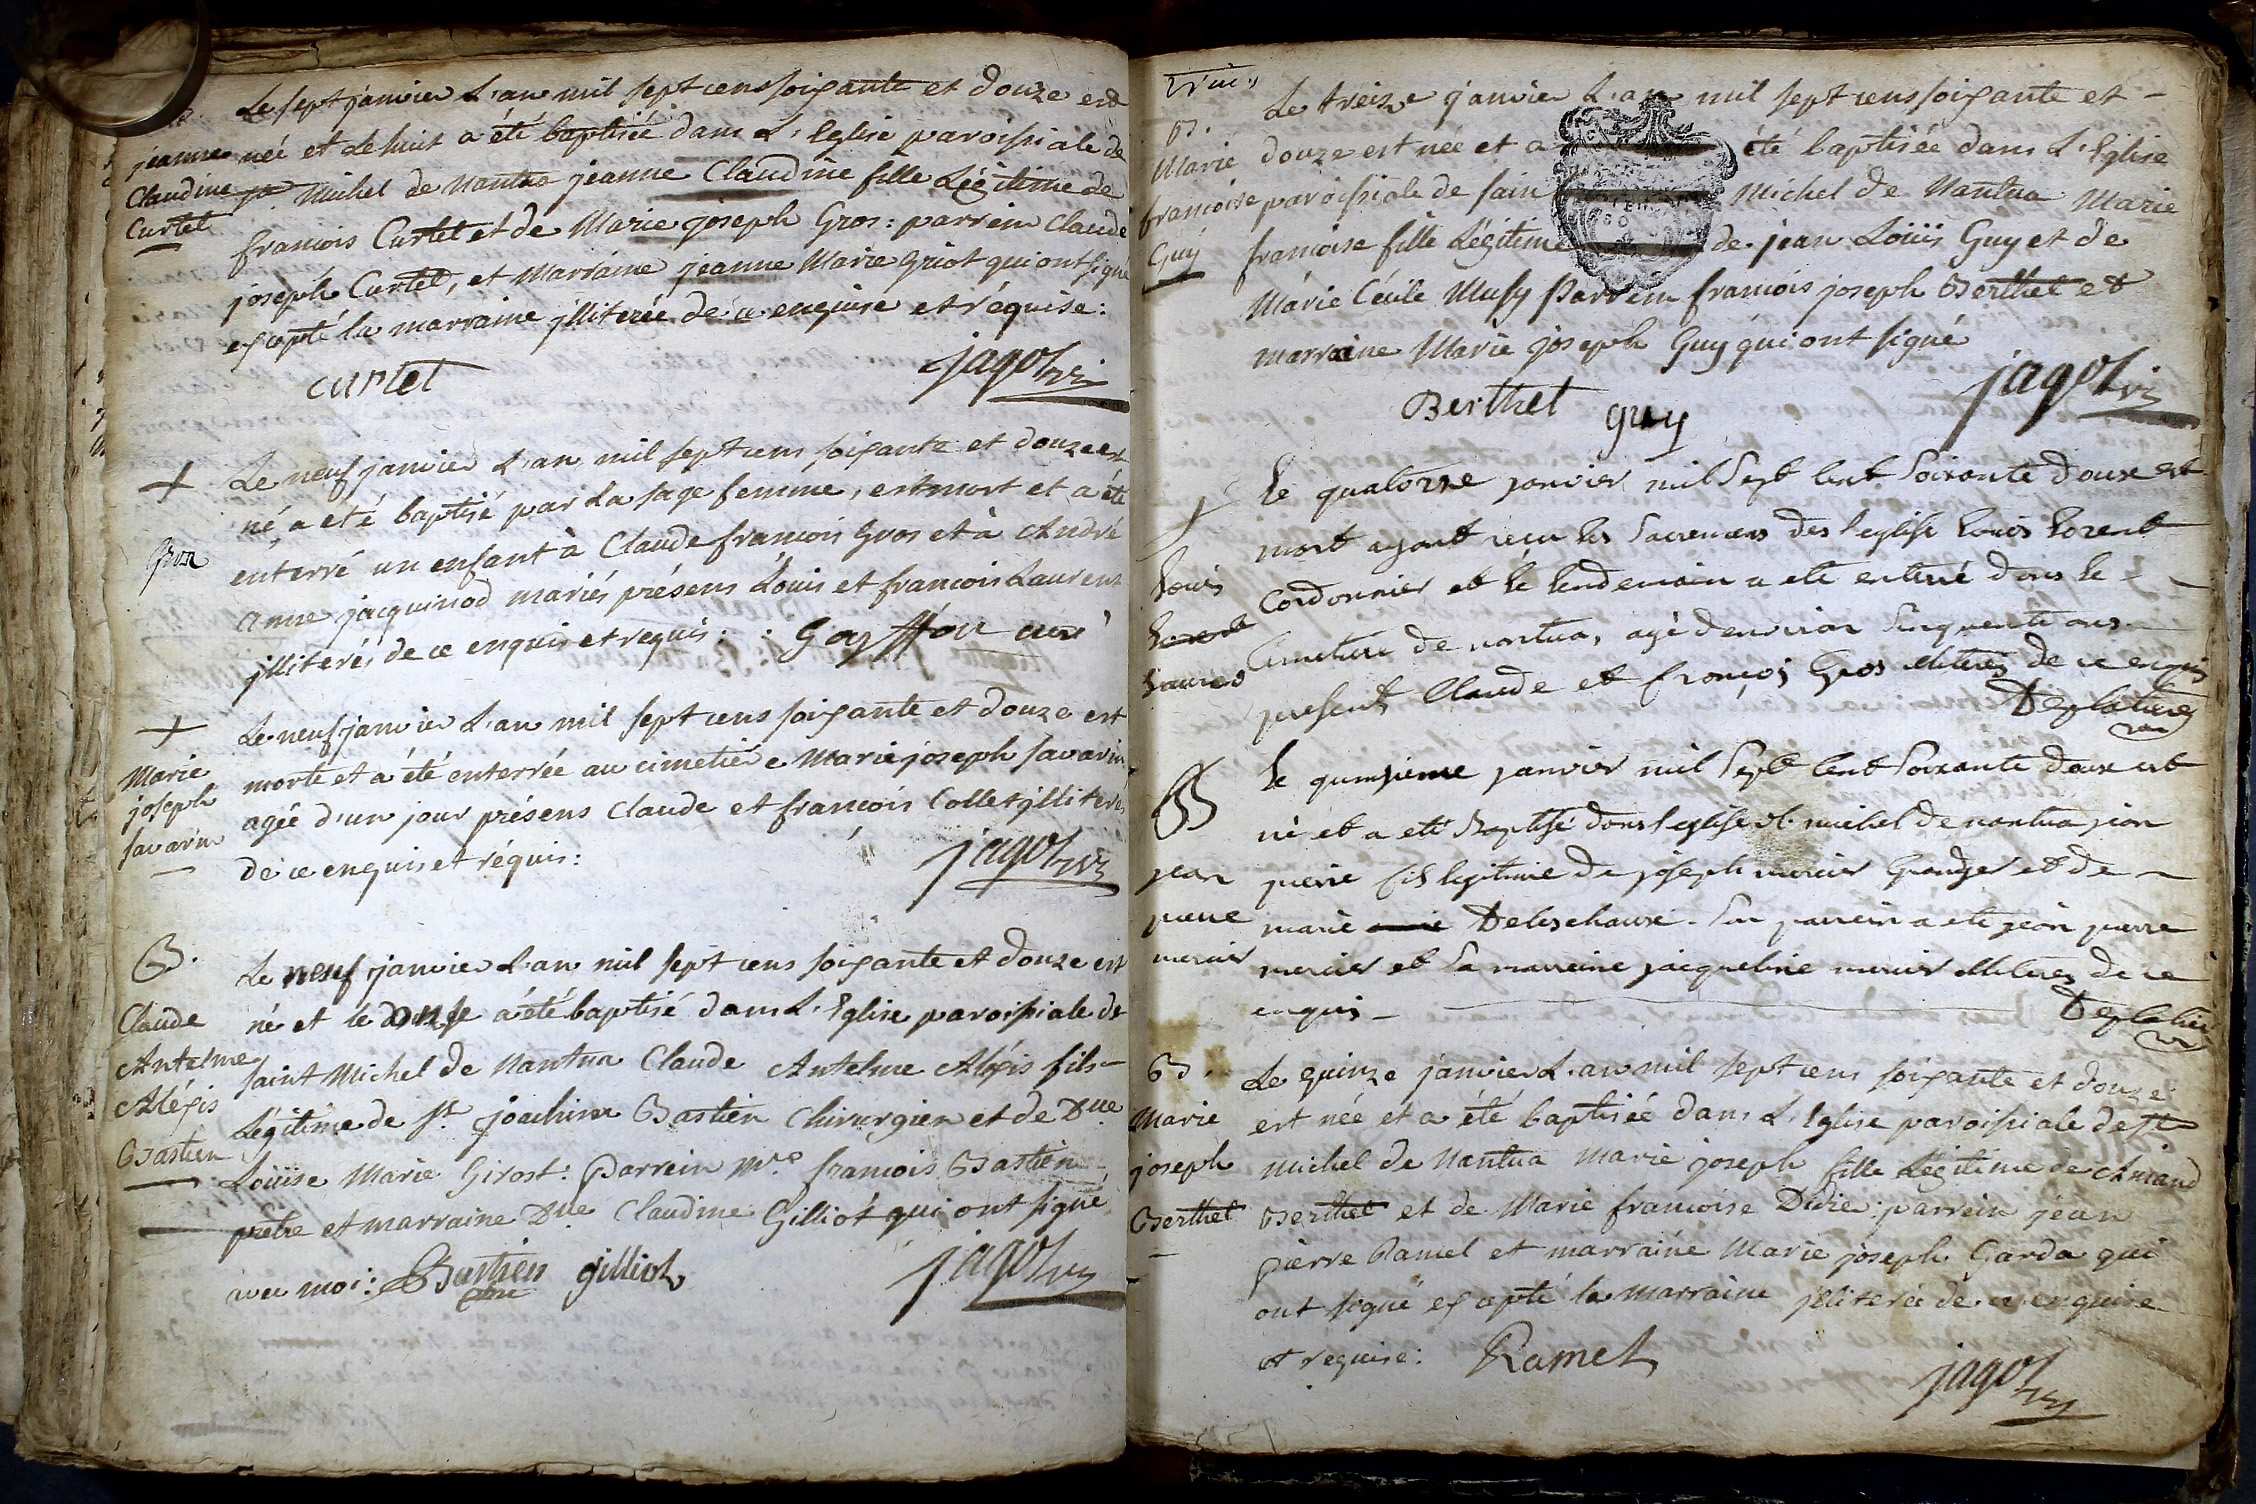 Le sept janvier L'an mil sept cens soixante et douze est
jeanne
Claudine
Curtet
née et le huit a été baptisée dans L'Eglise paroissiale de
Michel de Nantua jeanne Claudine fille Légitime de
francois Curtet et de Marie joseph Gros: parrein Claude
joseph Curtet, et Marraine jeanne Marie Griot qui ont signé
excepté la marraine jlliterée de ce enquise et réquise:
curtet
jagot vi
+
Gros
Le neuf janvier L'an mil sept cens soixante et douze est
né, a été baptisé par La sage femme, est mort et a été
enterré un enfant à Claude francois Gros et à André
anne jacquinod mariés présens Louis et francois Laurent
jlliterés de ce enquis et requis: Goyffon curé
+
Marie
joseph
savarin
Le neuf janvier L'an mil sept cens soixante et douze est
morte et a été enterrée au cimetière Marie joseph savarin
agée d'un jour présens Claude et francois Collet jlliterés
de ce enquis et réquis:
jagot vi
B.
Claude
Antelme
Aléxis
Bastien
Le neuf janvier L'an mil sept cens soixante et douze est
né et le douse a été baptisé dans L'Eglise paroissiale de
saint Michel de Nantua Claude Antelme Aléxis fils
Légitime de Sr. joachim Bastien Chirurgien et de Dlle
Loüise Marie Girost: Parrein Mre francois Bastien
prêtre et marraine Dlle Claudine Gilliot qui ont signé
avec moi: Bastien gilliot
jagot vi
B.
Marie
francoise
Guy
Le treize janvier L'an mil sept cens soixante et
douze est née et a été baptisée dans L'Eglise
paroissiale de sain Michel de Nantua Marie
francoise fille Légitime de jean Loüis Guy et de
Marie Cécile Musy Parrein francois joseph Berthet et
marraine Marie joseph Guy qui ont signé
Berthet guy
jagot vi
+
Louis
Laurend
Le quatorze janvier mil Sept Cent Soixante Douze est
mort ayant reçu les Sacremens des l'eglise Louis Lorent
Cordonnier et le lendemain a eté enterré dans le
Cimetiere de nantua, agé denviron Cinquente ans
presents Claude et françois Gros illiterés de ce enquis
Deplatures
B
jean
pierre
mercier
le quinsieme janvier mil Sept Cent Soixante Douze est
né et a eté Baptisé dans l'eglise St. michel de nantua jean
pierre fils legitime de joseph mercier Granger et de
marie Deleschaux. Son parrein a eté jean pierre
mercier et Sa marreine jacqueline mercier illiterés de ce
enquis
Deplatures
B.
Marie
joseph
Berthet
Le quinze janvier L'an mil sept cens soixante et douze
est née et a été baptisée dans L'Eglise paroissiale de St
Michel de Nantua Marie joseph fille Légitime de Amand
Berthet et de Marie francoise Didie: parrein jean
pierre Ramel et marraine Marie joseph Garda qui
ont signé excepté la marraine jlliterée de ce enquise
et requise: Ramel
jagot vi